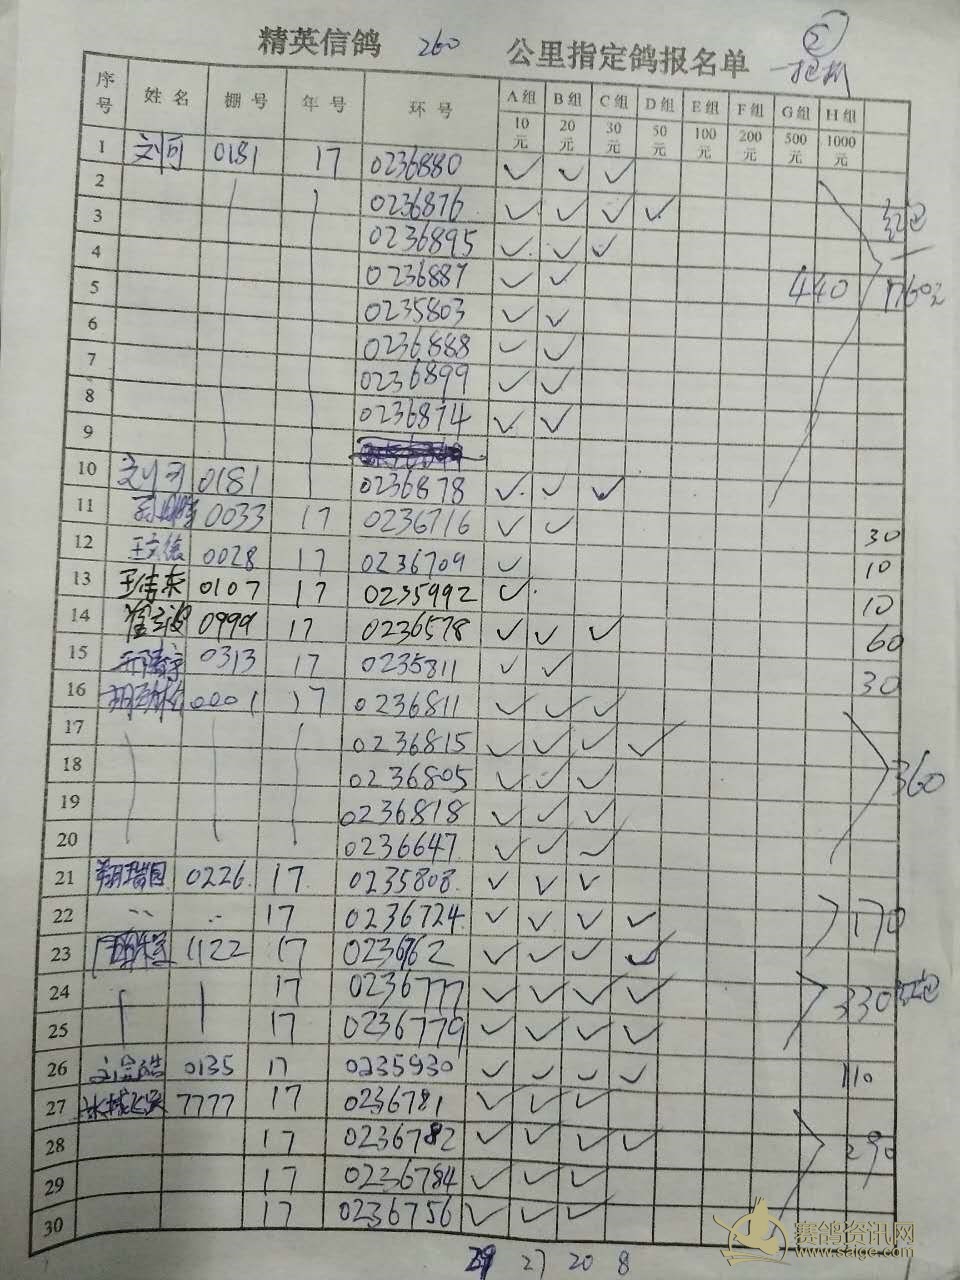 精英信鸽 260 公里指定鸽报名单 ②
序号 姓名 棚号 年号 环号 A组 B组 C组 D组 E组 F组 G组 H组
10元 20元 30元 50元 100元 200元 500元 1000元
1 刘可 0181 17 0236880 ✓ ✓ ✓
2 0236876 ✓ ✓ ✓ ✓
3 0236895 ✓ ✓ ✓
4 0236887 ✓ ✓ 440
5 0235803 ✓ ✓
6 0236888 ✓ ✓
7 0236899 ✓ ✓
8 0236874 ✓ ✓
9
10 刘可 0181 0236878 ✓ ✓ ✓
11 0033 17 0236716 ✓ ✓ 30
12 王文德 0028 17 0236709 ✓ 10
13 0107 17 0235992 ✓ 10
14 0999 17 0236578 ✓ ✓ ✓ 60
15 0313 17 0235811 ✓ ✓ 30
16 0001 17 0236811 ✓ ✓ ✓
17 0236815 ✓ ✓ ✓ ✓
18 0236805 ✓ ✓ ✓ 360
19 0236818 ✓ ✓ ✓
20 0236647 ✓ ✓ ✓
21 0226 17 0235808 ✓ ✓ ✓
22 17 0236724 ✓ ✓ ✓ ✓ 170
23 1122 17 0236762 ✓ ✓ ✓ ✓
24 17 0236777 ✓ ✓ ✓ ✓ 330
25 17 0236779 ✓ ✓ ✓ ✓
26 0135 17 0235930 ✓ ✓ ✓ ✓ 110
27 7777 17 0236781 ✓ ✓ ✓
28 17 0236782 ✓ ✓ ✓ ✓ 290
29 17 0236784 ✓ ✓ ✓
30 17 0236756 ✓ ✓ ✓
29 27 20 8
赛鸽资讯网
www.saige.com